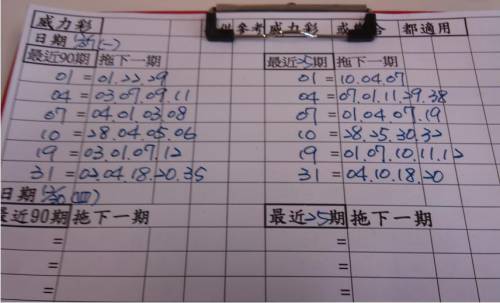 威力彩 參考威力彩 或 合 都適用
日期 (一)
最近90期 拖下一期 最近25期 拖下一期
01 = 01.22.29 01 = 10.04.07
04 = 03.07.09.11 04 = 07.01.11.39.38
07 = 04.01.03.08 07 = 01.04.07.19
10 = 28.04.05.06 10 = 28.25.30.32
19 = 03.01.07.12 19 = 01.07.10.11.12
31 = 02.04.18.20.35 31 = 04.10.18.20
日期
最近90期 拖下一期 最近25期 拖下一期
= =
= =
= =